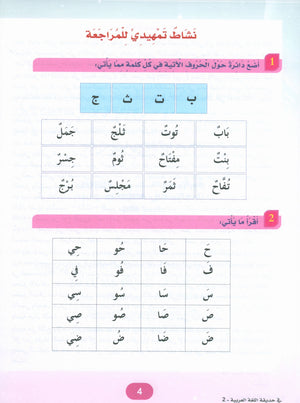 نَشَاطٌ تَمْهِيدِيٌّ لِلْمُرَاجَعَةِ
1 أَضَعُ دَائِرَةً حَوْلَ الْحُرُوفِ الْآتِيَةِ فِي كُلِّ كَلِمَةٍ مِمَّا يَأْتِي:
ب ت ث ج
بَابٌ تُوتٌ ثَلْجٌ جَمَلٌ
بِنْتٌ مِفْتَاحٌ ثُومٌ جِسْرٌ
تُفَّاحٌ ثَمَرٌ مَجْلِسٌ بُرْجٌ
2 أَقْرَأُ مَا يَأْتِي:
حَ حَا حُو حِي
فَ فَا فُو فِي
سَ سَا سُو سِي
صَ صَا صُو صِي
ضَ ضَا ضُ ضِي
4
في حديقة اللغة العربية - 2